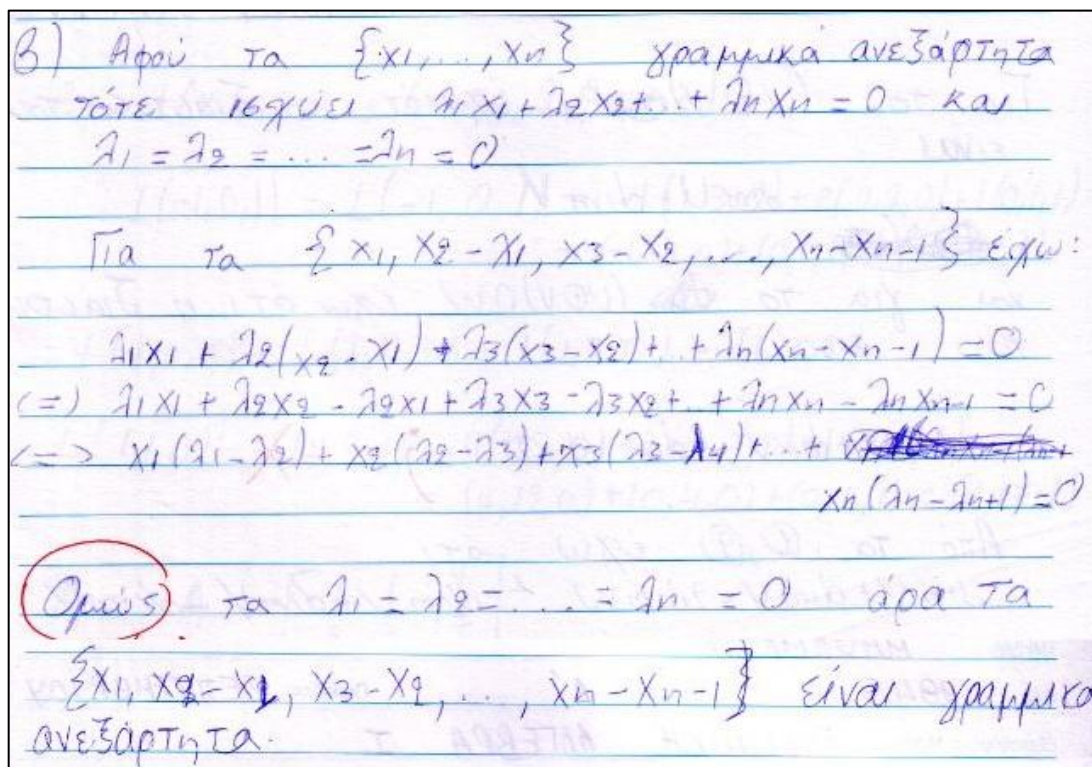 β) Αφού τα {x1,...,xn} γραμμικά ανεξάρτητα
τότε ισχύει λ1x1+λ2x2+..+λnxn=0 και
λ1=λ2=...=λn=0
Για τα {x1, x2-x1, x3-x2,..., xn-xn-1} εχω:
λ1x1+λ2(x2-x1)+λ3(x3-x2)+..+λn(xn-xn-1)=0
<=> λ1x1+λ2x2-λ2x1+λ3x3-λ3x2+..+λnxn-λnxn-1=0
<=> x1(λ1-λ2)+x2(λ2-λ3)+x3(λ3-λ4)+..+
xn(λn-λn+1)=0
Ομώς τα λ1=λ2=...=λn=0 άρα τα
{x1, x2-x1, x3-x2,..., xn-xn-1} είναι γραμμικα
ανεξάρτητα.